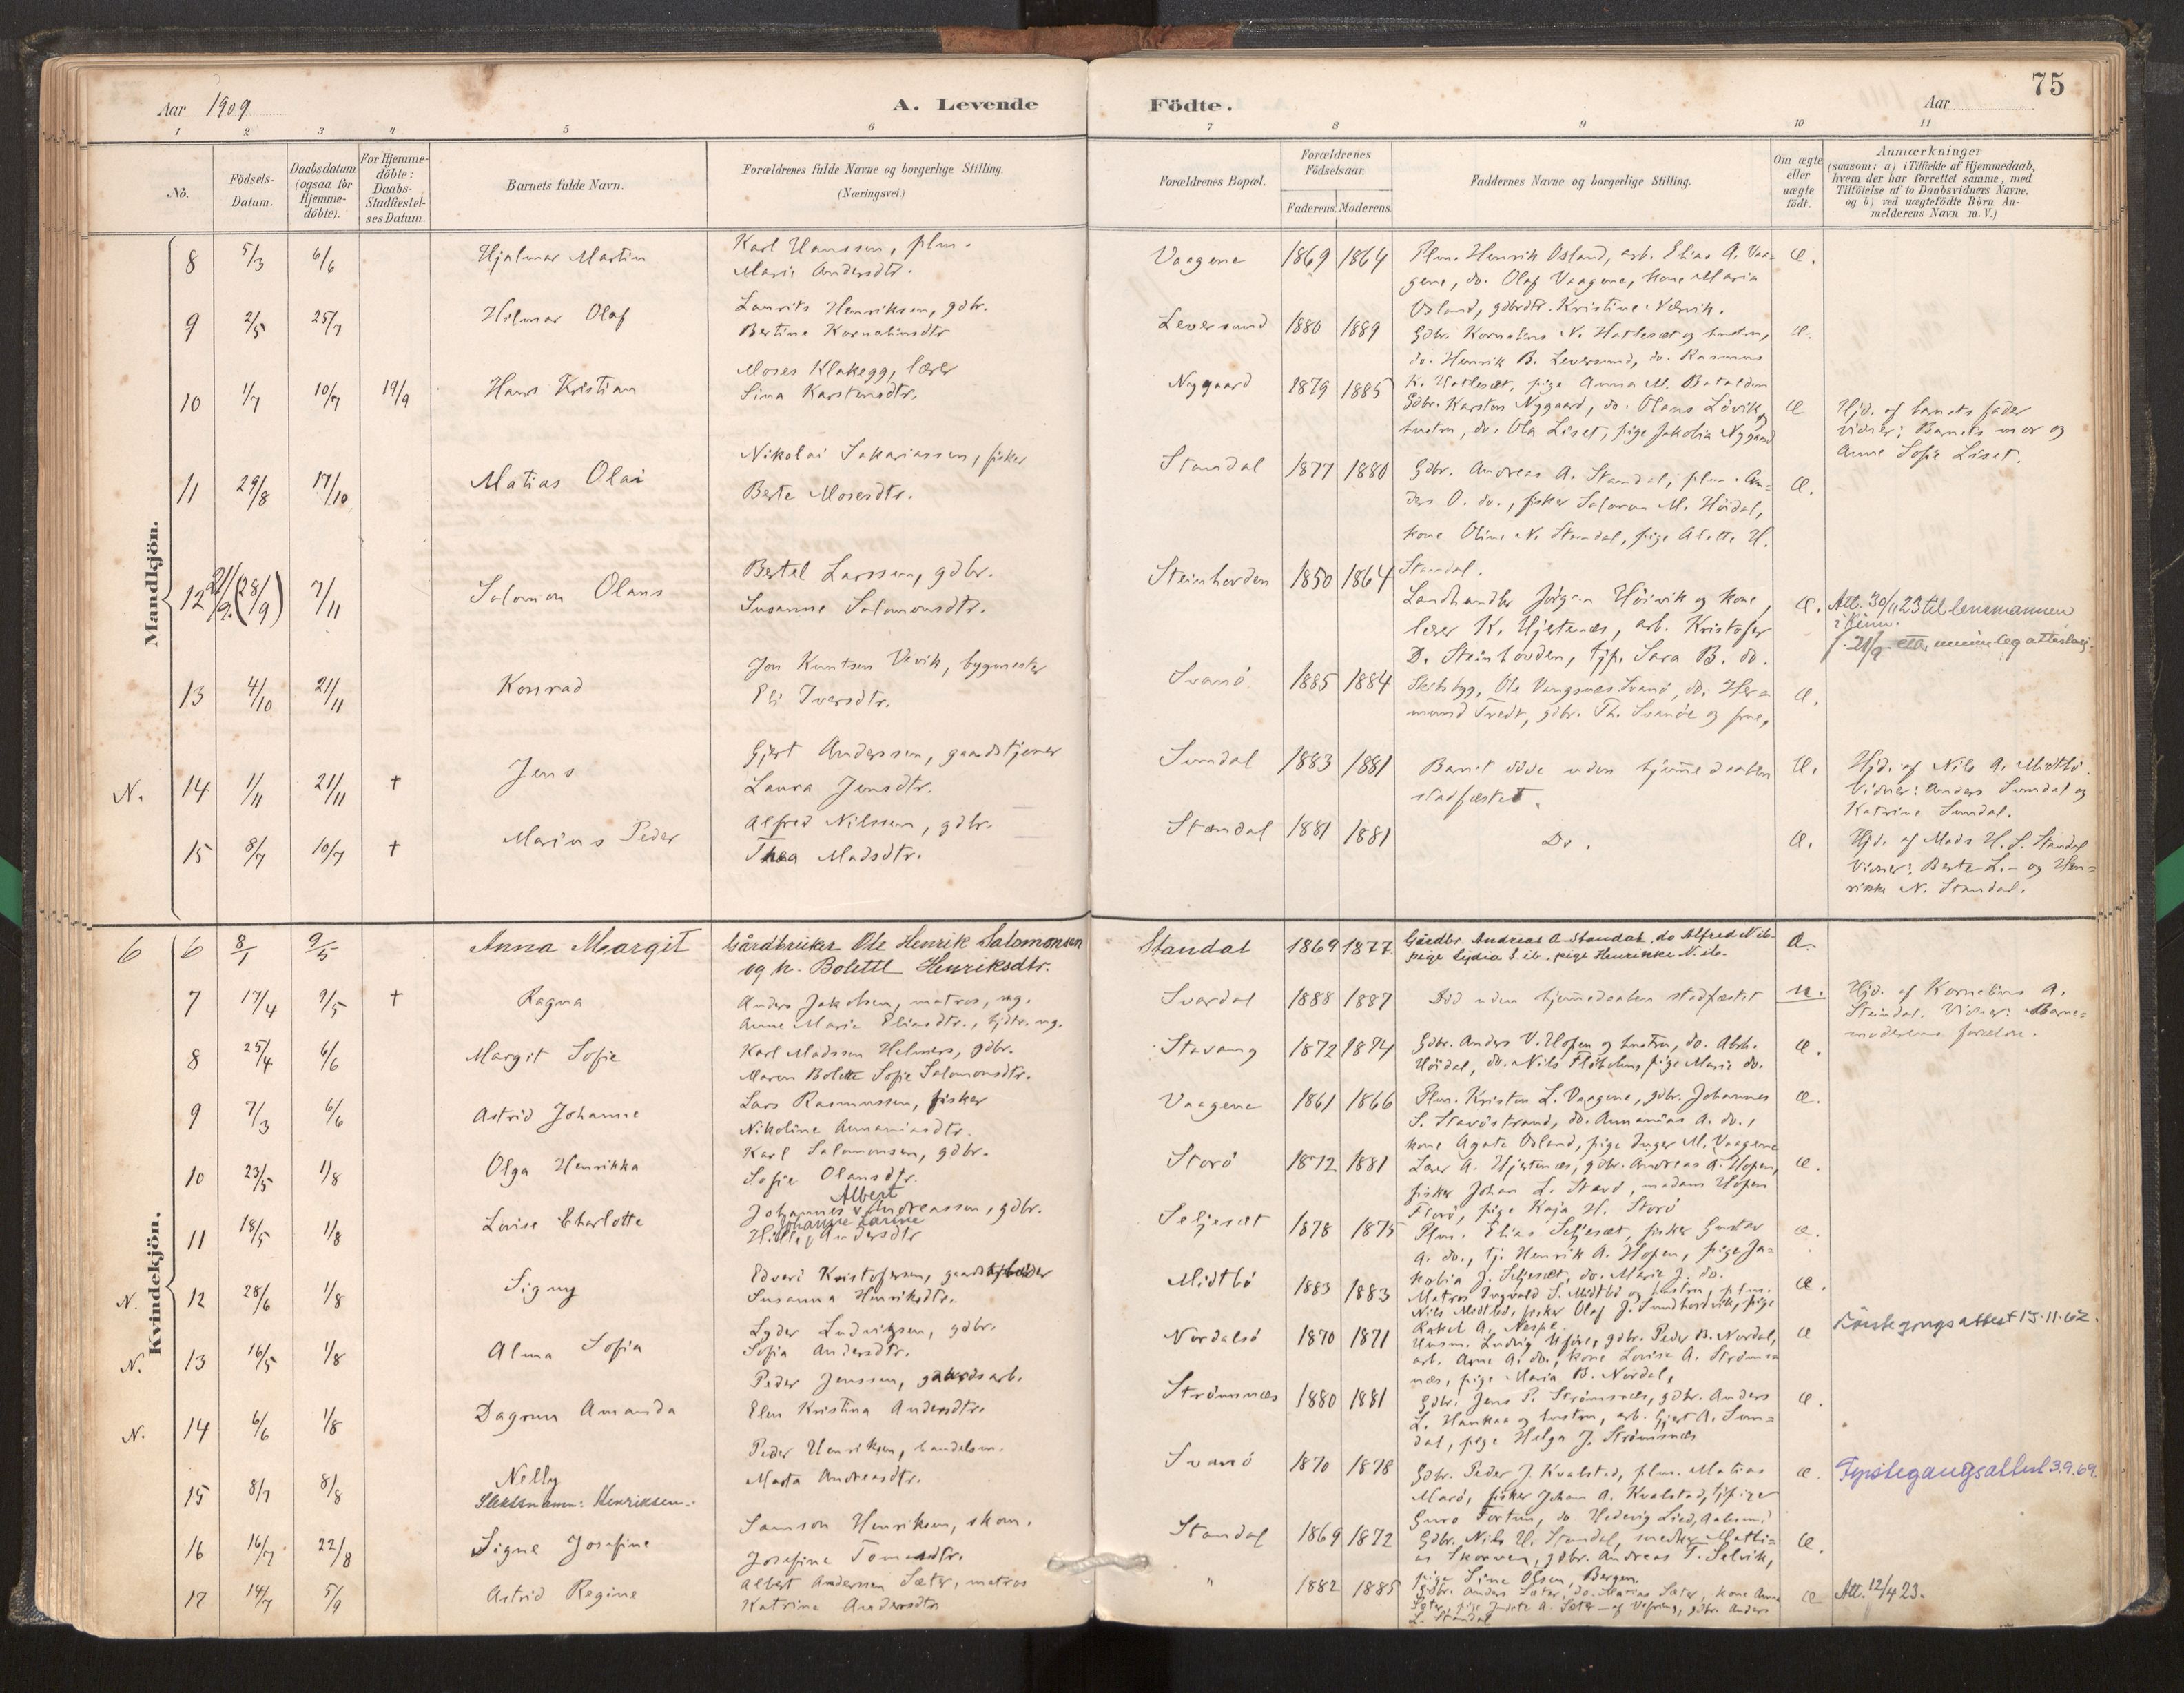 75
Aar 1909 A. Levende Födte. Aar
1 2 3 4 5 6 7 8 9 10 11
No.
Födsels-Datum.
Daabsdatum (ogsaa for Hjemme-döbte).
For Hjemme-döbte: Daabs-Stadfæstel-ses Datum.
Barnets fulde Navn.
Forældrenes fulde Navne og borgerlige Stilling. (Næringsvei.)
Forældrenes Bopæl.
Forældrenes Födselsaar.
Faderens. Moderens.
Faddernes Navne og borgerlige Stilling.
Om ægte eller uægte födt.
Anmærkninger
(saasom: a) i Tilfælde af Hjemmedaab,
hvem der har forrettet samme, med
Tilföielse af to Daabsvidners Navne,
og b) ved uægtefödte Börn An-
melderens Navn m.V.)
Mandkjön.
8 5/3 6/6 Hjalmar Martin
Karl Hanssen, plm.
Marie Andersdtr.
Vaagene 1869 1864
Plm. Henrik Osland, arb. Elias A. Vaa-
gene, do. Olaf Vaagene, kone Maria
Osland, gdbrdtr. Kristine Nærvik.
Æ.
9 2/5 25/7 Hilmar Olaf
Laurits Henriksen, gdbr.
Bertine Korneliusdtr
Leversund 1880 1889
Gdbr. Kornelius N. Hatleset og hustru,
do. Henrik B. Leversund, do. Rasmus
K. Hatleset, pige Anna M. Batalden
Æ.
10 1/7 10/7 19/9 Hans Kristian
Moses Klakegg, lærer
Sina Karstensdtr.
Nygaard 1879 1885
Gdbr. Karsten Nygaard, do. Olaus Lövik og
hustru, do. Ola Liset, pige Jakobia Nygaard
Æ
Hjd. af barnets fader
vidner: Barnets mor og
Anne Sofie Liset.
11 29/8 17/10 Matias Olai
Nikolai Sakariassen, fisker
Berte Mosesdtr.
Standal 1877 1880
Gdbr. Andreas A. Standal, plm. An-
ders O. do., fisker Salomon M. Höidal,
kone Oline N. Standal, pige Alette H.
Standal.
Æ.
12 21/9. (28/9) 7/11 Salomon Olaus
Bertel Larssen, gdbr.
Susanne Salomonsdtr.
Steinhovden 1850 1864
Landhandler Jörgen Höivik og kone,
lærer K. Hjertenes, arb. Kristofer
D. Steinhovden, tjp. Sara B. do.
Æ.
Att. 30/11 23 til lensmannen
i Kinn.
13 4/10 21/11 Konrad
Jon Knutsen Vevik, bygmester
Eli Iversdtr.
Svanö 1885 1884
Skibsbygg. Ole Vangsnes Svanö, do. Her-
mund Tredt, gdbr. Th. Svanöe og frue,
Æ.
N. 14 1/11 21/11 † Jens
Gjert Anderssen, gaardstjener
Laura Jensdtr.
Sundal 1883 1881
Barnet döde uden hjemmedaaben
stadfæstet.
Æ.
Hjd. af Nils A. Midtbö.
Vidner: Anders Sundal og
Katrine Sundal.
15 8/7 10/7 † Marius Peder
Alfred Nilssen, gdbr.
Thea Madsdtr.
Standal 1881 1881
Do.
Æ.
Hjd. af Mads H. S. Standal
Vidner: Berte L.- og Hen-
rikke N. Standal.
Kvindekjön.
6 6 8/1 9/5 Anna Margit
Gårdbruker Ole Henrik Salomonsen
og h. Bolette Henriksdtr.
Standal 1869 1877.
Gårdbr. Andreas A Standal, do Alfred N ib.
pige Lydia S ib. pige Henrikke N. ib.
Æ.
7 17/4 9/5 † Ragna
Anders Jakobsen, matros, ug.
Anne Marie Eliasdtr., tjdtr. ug.
Svardal 1888 1887
Död uden hjemmedaaben stadfæstet
u.
Hjd. af Kornelius A.
Steindal. Vidner: Barne-
moderens forældre.
8 25/4 6/6 Margit Sofie
Karl Madssen Helmers, gdbr.
Maren Bolette Sofie Salomonsdtr.
Stavang 1872 1874
Gdbr. Anders V. Hopen og hustru, do. Abrh.
Höidal, do. Nils Flöholm, pige Marie do.
Æ.
9 7/3 6/6 Astrid Johanne
Lars Rasmussen, fisker
Nikoline Annaniasdtr.
Vaagene 1861 1866
Plm. Kristen L. Vaagene, gdbr. Johannes
S. Stavöstrand, do. Annanias A. do.,
kone Agate Osland, pige Inger M. Vaagene
Æ.
10 23/5 1/8 Olga Henrikka
Karl Salomonsen, gdbr.
Sofie Olausdtr.
Storö 1872 1881
Lærer A. Hjertenes, gdbr. Andreas A. Hopen,
fisker Johan L. Stavö, madam Hopen
Florö, pige Kaja H. Storö
Æ.
11 18/5 1/8 Lovise Charlotte
Johannes Albert Andreassen, gdbr.
Johanne Larine
Andersdtr
Seljeset 1878 1875
Plm. Elias Seljeset, fisker Gustav
A. do., tj. Henrik A. Hopen, pige Ja-
kobia J. Seljeset, do. Marie J. do.
Æ.
N. 12 28/6 1/8 Signy
Edvard Kristofersen, gaardsarbeider
Susanna Henriksdtr.
Midtbö 1883 1883
Matros Ingvald S. Midtbö og hustru, plm.
Nils Midtbö, fisker Olaf J. Sundhordvik, pige
Rakel A. Nespe.
Æ.
N. 13 16/5 1/8 Alma Sofia
Lyder Ludvigsen, gdbr.
Sofia Andersdtr.
Nordalsö 1870 1871
Husm. Ludvig Ufjöre, gdbr. Peder B. Nordal,
arb. Arne A. do., kone Lovise A. Strömse
næs, pige Maria B. Nordal,
Æ
Förstegongsattest 15.11.62.
N. 14 6/6 1/8 Dagrun Amanda
Peder Jenssen, gaardsarb.
Elen Kristina Andersdtr.
Strömsnæs 1880 1881
Gdbr. Jens P. Strömsnæs, gdbr. Anders
L. Haukaa og hustru, arb. Gjert A. Sun-
dal, pige Helga J. Strömsnæs
Æ.
15 8/7 8/8 Nelly
Slektsnamn: Henriksen.
Peder Henriksen, handelsm.
Marta Andreasdtr.
Svanö 1870 1878
Gdbr. Peder J. Kvalstad, plm. Matias
Marö, fisker Johan A. Kvalstad, tjpige
Guro Fortun, do Hedevig Lied, Aalesund
Æ.
Fyrstegangsattest 3.9.69.
16 16/7 22/8 Signe Josefine
Samson Henriksen, skom.
Josefine Tomasdtr.
Standal 1869 1872
Gdbr. Nils H. Standal, snedker Matti-
as Skorven, gdbr. Andreas T. Selvik,
pige Sine Olsen, Bergen.
Æ.
17 14/7 5/9 Astrid Regine
Albert Anderssen Sæter, matros
Katrine Andersdtr
" 1882 1885
Gdbr. Anders Sæter, do. Matias Sæter, kone Anna
Sæter, pige Judite A. Sæter - af Vefring, gdbr. Anders
L. Standal
Æ
Att. 12/4 23.